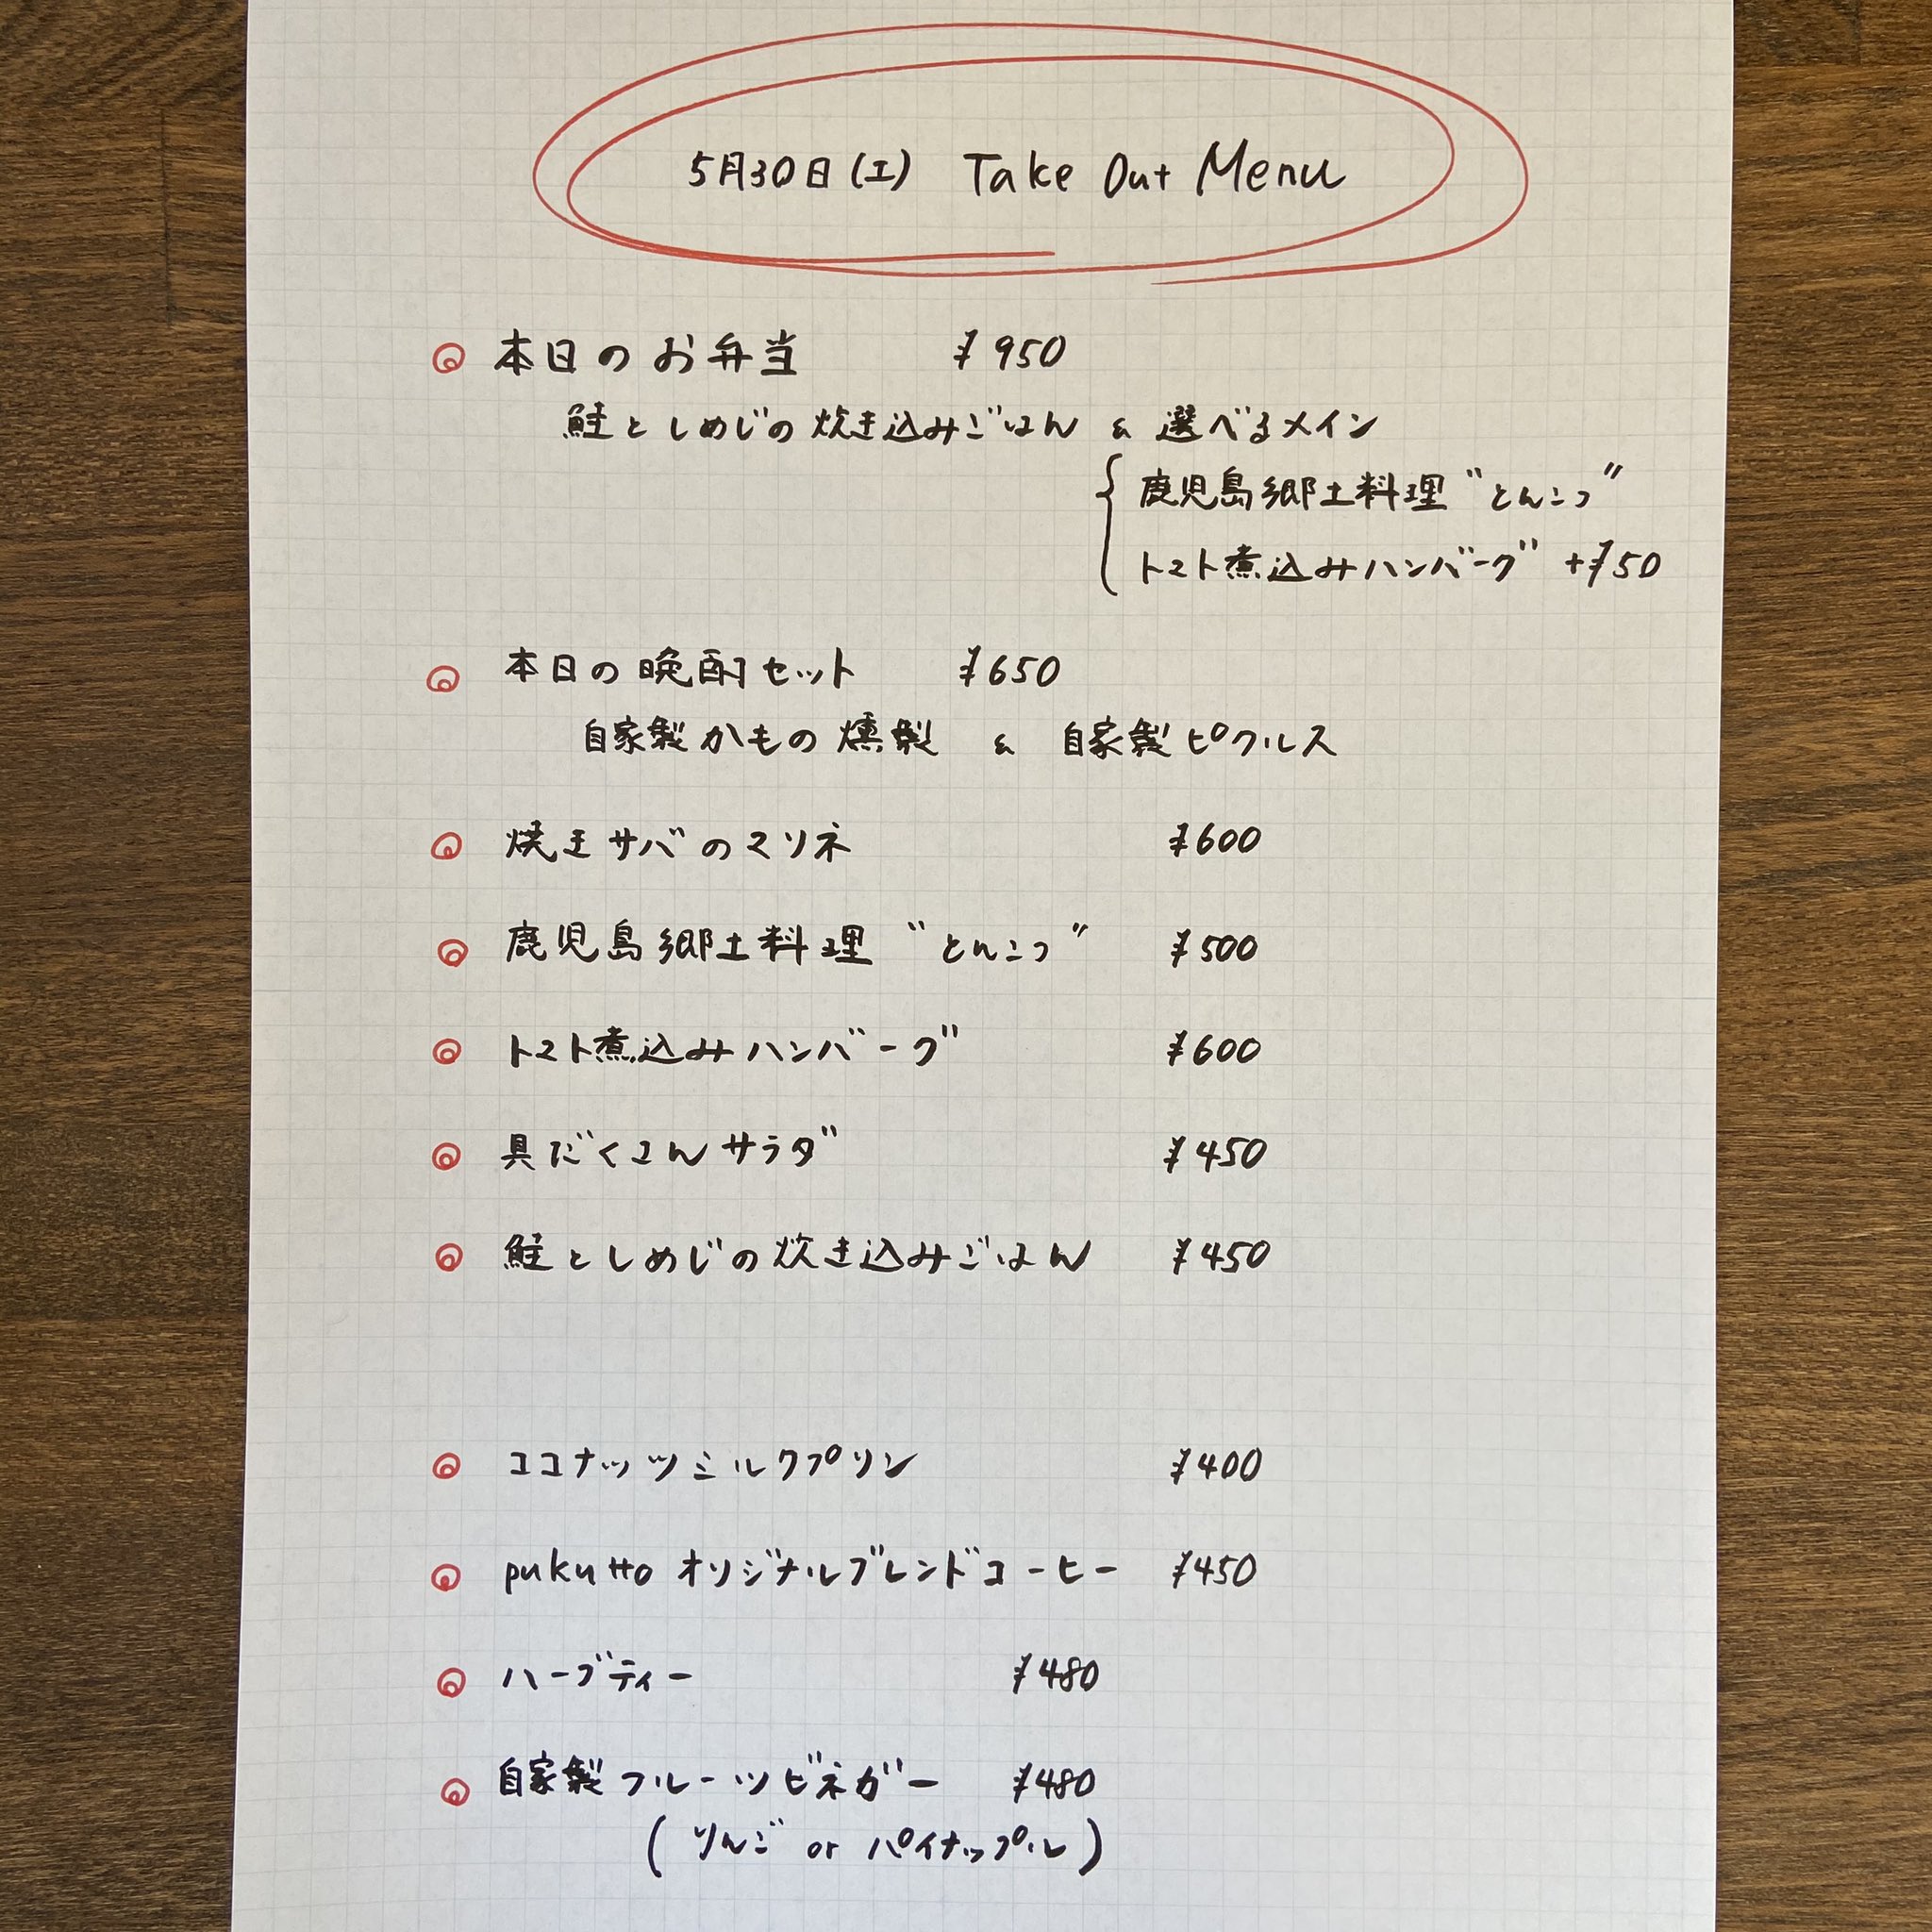 5月30日(土) Take Out Menu
本日のお弁当 ¥950
鮭としめじの炊き込みごはん & 選べるメイン
鹿児島郷土料理 "とんこつ"
トマト煮込みハンバーグ +¥50
本日の晩酌セット ¥650
自家製かもの燻製 & 自家製ピクルス
焼きサバのマリネ ¥600
鹿児島郷土料理 "とんこつ" ¥500
トマト煮込みハンバーグ ¥600
具だくさんサラダ ¥450
鮭としめじの炊き込みごはん ¥450
ココナッツミルクプリン ¥400
pukutto オリジナルブレンドコーヒー ¥450
ハーブティー ¥480
自家製フルーツビネガー ¥480
(りんご or パイナップル)